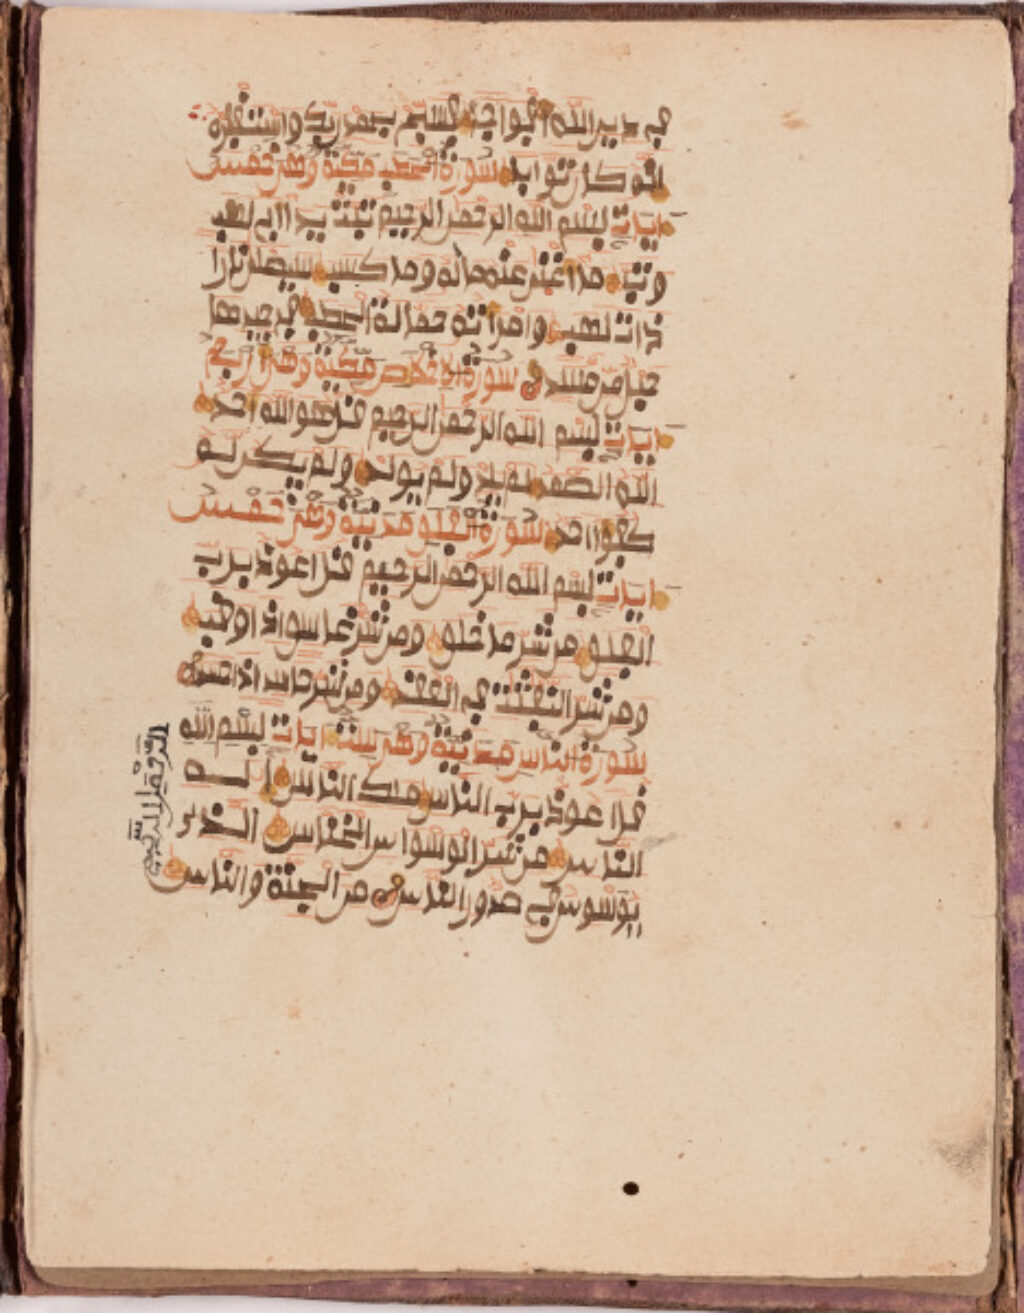 في دين الله افواجا فسبح بحمد ربك واستغفره
انه كان توابا سورة الحطب مكية وهي خمس
ايات بسم الله الرحمن الرحيم تبت يدا ابي لهب
وتب ما اغنى عنه ماله وما كسب سيصلى نارا
ذات لهب وامراته حمالة الحطب في جيدها
حبل من مسد سورة الاخلاص مكية وهي اربع
ايات بسم الله الرحمن الرحيم قل هو الله احد
الله الصمد لم يلد ولم يولد ولم يكن له
كفوا احد سورة الفلق مدنية وهي خمس
ايات بسم الله الرحمن الرحيم قل اعوذ برب
الفلق من شر ما خلق ومن شر غاسق اذا وقب
ومن شر النفثت في العقد ومن شر حاسد اذا حسد
سورة الناس مدنية وهي ست ايات بسم الله
الرحمن الرحيم
قل اعوذ برب الناس ملك الناس اله
الناس من شر الوسواس الخناس الذي
يوسوس في صدور الناس من الجنة والناس